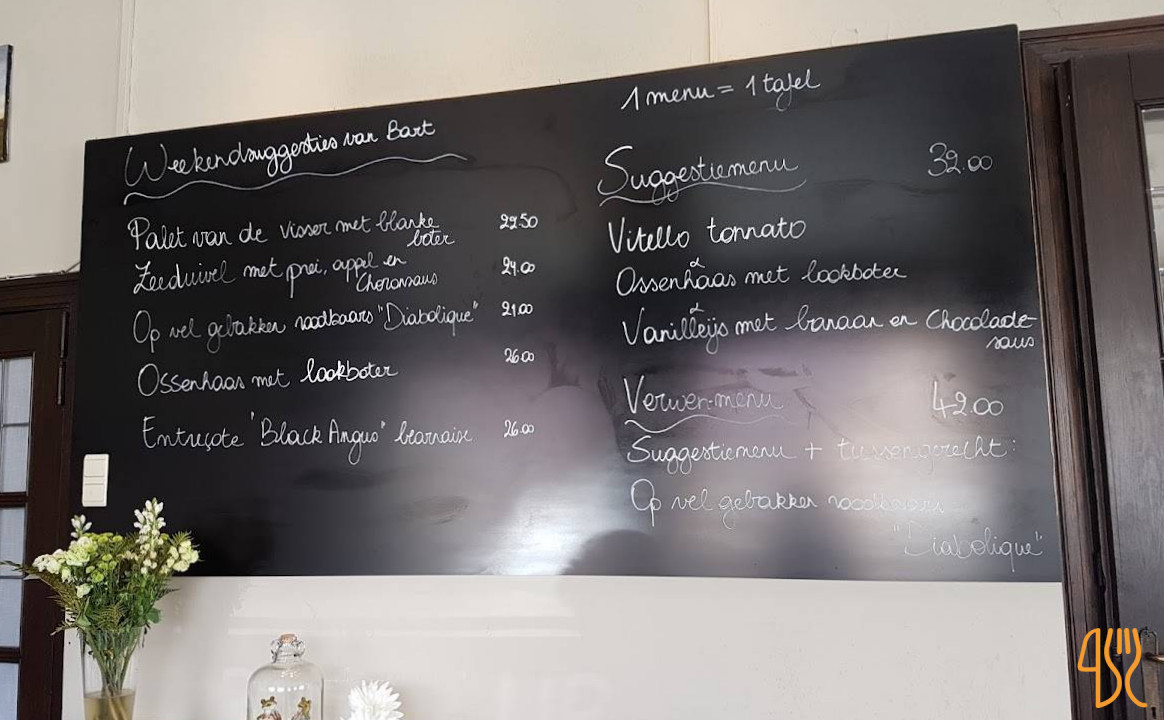 Weekendsuggesties van Bart
Palet van de visser met blanke
boter
Zeeduivel met prei, appel en
Choronsaus
24.00
Op vel gebakken roodbaars "Diabolique"
21.00
Ossenhaas met lookboter
26.00
Entreçote "Black Angus" bearnaise
26.00
1 menu = 1 tafel
Suggestiemenu 32.00
Vitello tonnato
Ossenhaas met lookboter
Vanilleijs met banaan en Chocolade-
saus
Verwen-menu 42.00
Suggestiemenu + tussengerecht:
Op vel gebakken roodbaars
"Diabolique"